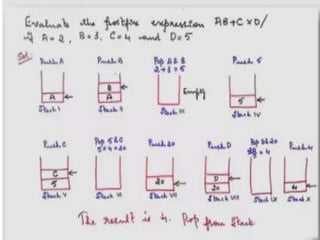 Evaluate the postfix expression AB+C×D/
if A=2, B=3, C=4 and D=5
Sol:
Push A
Push B
Pop A & B
2+3=5
Push 5
A
B
A
Empty
5
Stack I
Stack II
Stack III
Stack IV
Push C
Pop 5 & C
5*4=20
Push 20
Push D
Pop D & 20
Push 4
C
5
20
D
20
4
Stack V
Stack VI
Stack VII
Stack VIII
Stack IX
Stack X
The result is 4. Pop from Stack.